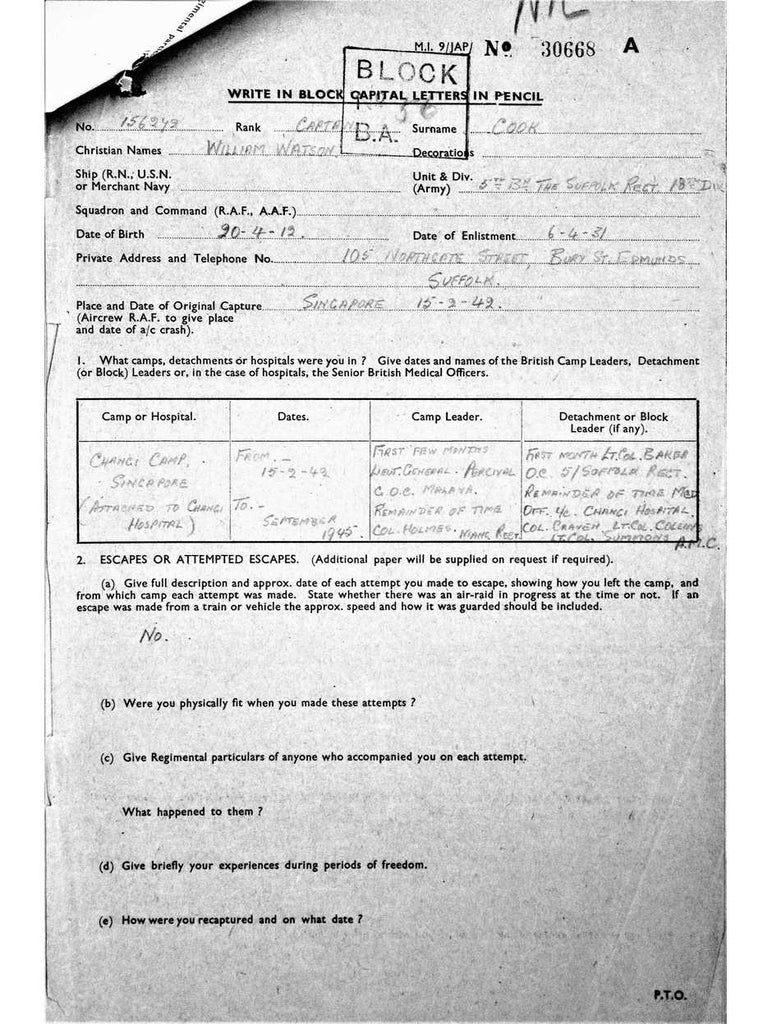 NIL
M.I. 9/JAP/ No 30668 A
BLOCK
B.A.
WRITE IN BLOCK CAPITAL LETTERS IN PENCIL
No. 156272 Rank CAPTAIN Surname COOK
Christian Names WILLIAM WATSON. Decorations
Ship (R.N., U.S.N. or Merchant Navy Unit & Div. (Army) 5TH BN THE SUFFOLK REGT. 18TH DIV
Squadron and Command (R.A.F., A.A.F.)
Date of Birth 20-4-12. Date of Enlistment 6-4-31
Private Address and Telephone No. 105 NORTHGATE STREET, BURY ST. EDMUNDS
SUFFOLK.
Place and Date of Original Capture SINGAPORE 15-2-42.
(Aircrew R.A.F. to give place
and date of a/c crash).
1. What camps, detachments or hospitals were you in ? Give dates and names of the British Camp Leaders, Detachment
(or Block) Leaders or, in the case of hospitals, the Senior British Medical Officers.
Camp or Hospital. Dates. Camp Leader. Detachment or Block
Leader (if any).
CHANGI CAMP,
SINGAPORE
(ATTACHED TO CHANGI
HOSPITAL)
FROM.-
15-2-42
TO.-
SEPTEMBER
1945.
FIRST FEW MONTHS
LIEUT. GENERAL. PERCIVAL
G.O.C. MALAYA.
REMAINDER OF TIME
COL. HOLMES. REGT.
FIRST MONTH LT. COL. BAKER
O.C. 5/SUFFOLK REGT.
REMAINDER OF TIME MED
OFF. i/c. CHANGI HOSPITAL,
COL. CRAVEN, LT. COL. COLLINS
LT. COL. SUMMONS A.M.C.
2. ESCAPES OR ATTEMPTED ESCAPES. (Additional paper will be supplied on request if required).
(a) Give full description and approx. date of each attempt you made to escape, showing how you left the camp, and
from which camp each attempt was made. State whether there was an air-raid in progress at the time or not. If an
escape was made from a train or vehicle the approx. speed and how it was guarded should be included.
No.
(b) Were you physically fit when you made these attempts ?
(c) Give Regimental particulars of anyone who accompanied you on each attempt.
What happened to them ?
(d) Give briefly your experiences during periods of freedom.
(e) How were you recaptured and on what date ?
P.T.O.